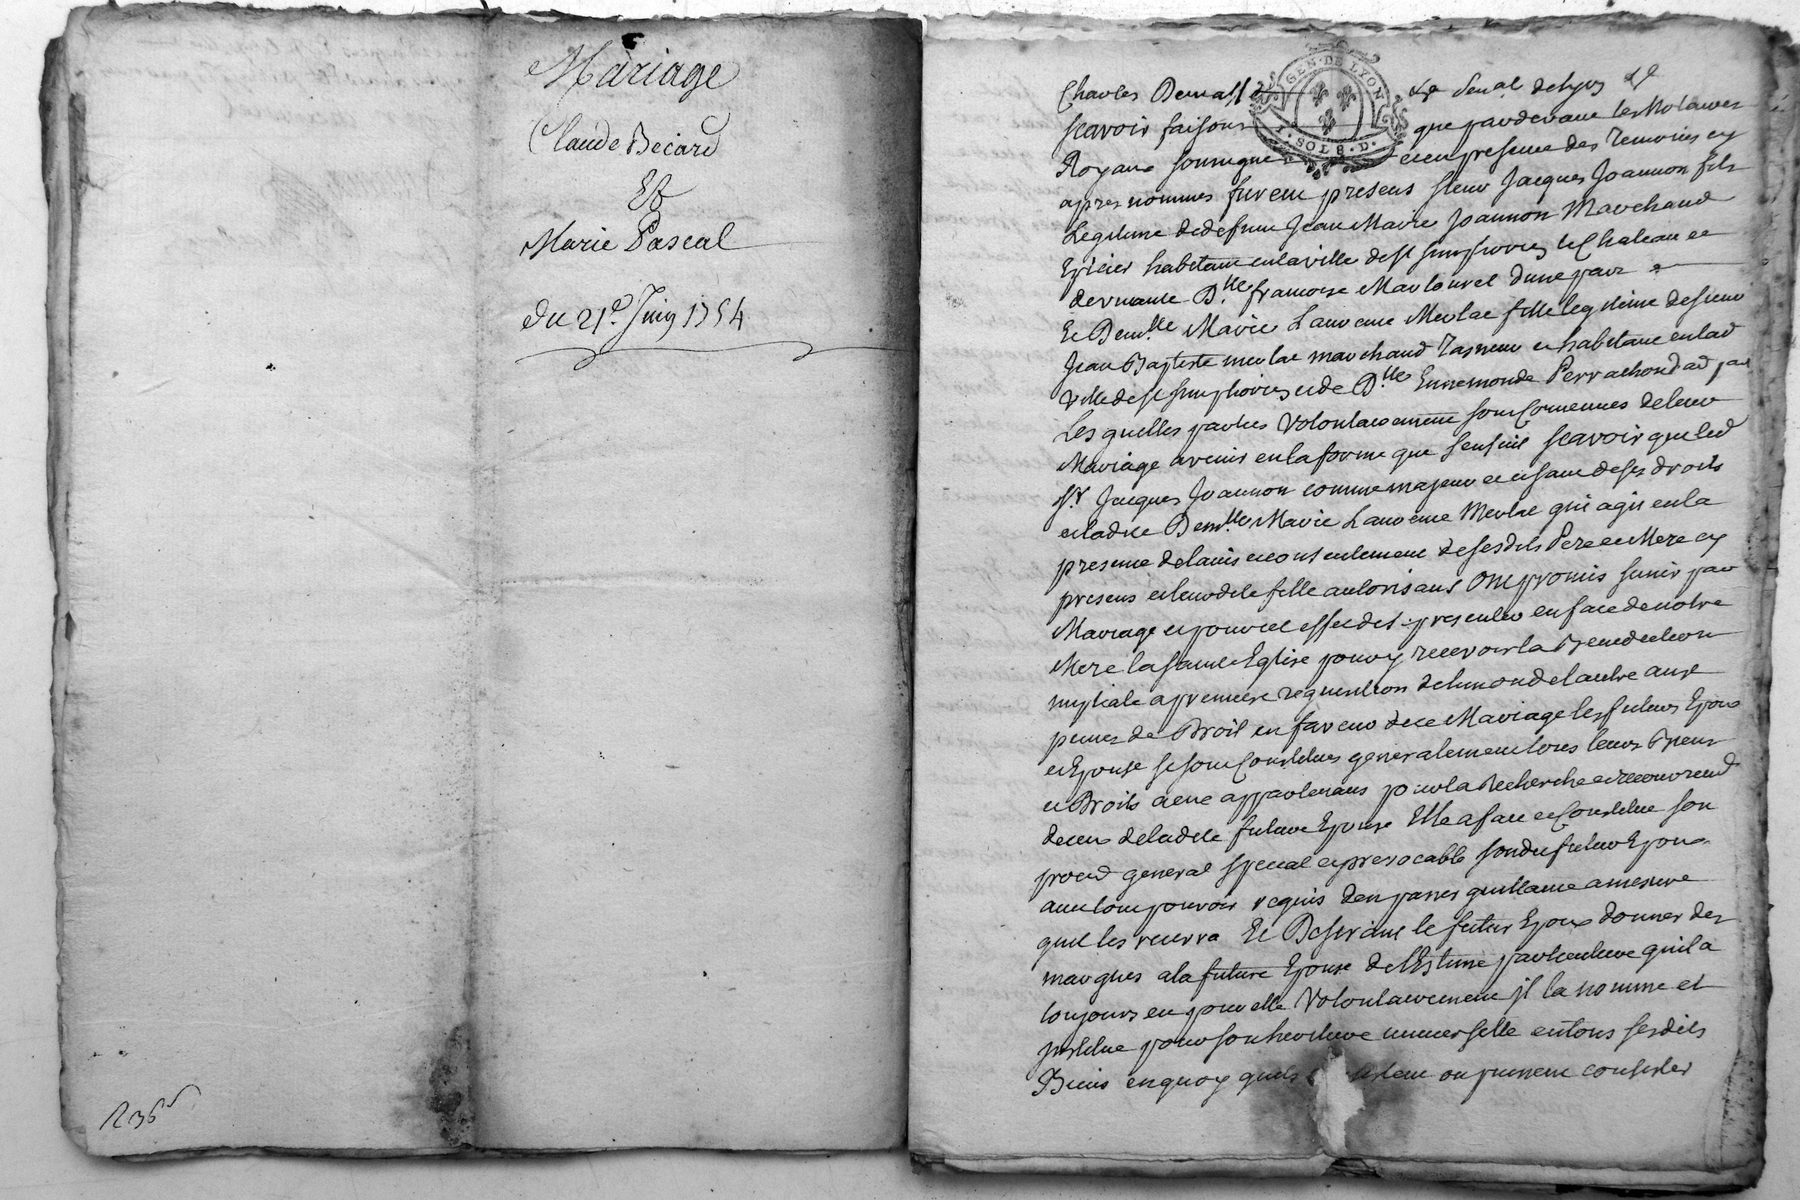 Mariage
Claude Becard
Et
Marie Pascal
du 21e. Juin 1754
R 36s
GEN·DE LYON
1·SOL 8·D·
Charles Demasso &c senal de Lyon &c
scavoir faisons que pardevant les Notaires
Royaux soussignes et en presence des temoins cy
apres nommes furent presens sieur Jacques Joannon fils
Legitime de defunt Jean Marie Joannon Marchand
Epicier habitant en la ville de st simphorien le Chateau et
de vivante Dlle francoise Marlouvet d'une part
Et Demlle Marie Laurence Merlat fille legitime de sieur
Jean Baptiste merlat marchand Tasneur et habitant en lad
Ville de st simphorien et de Dlle Ennemonde Perrachon d'ad par
Les quelles parties Volontairement sont Convenues de leur
Mariage avenir en la forme que sensuit scavoir que led
sr Jacques Joannon comme majeur et usant de ses droits
et ladite Demlle Marie Laurence Merlat qui agit en la
presence de lavis et consentement de sesdits Pere et Mere cy
presens et leurdite fille autorisant Ont promis sunir par
Mariage et pour cet effet de se presenter en face de notre
Mere la sainte Eglise pour y recevoir la Benediction
nuptiale a premiere requisition de lun ou de lautre aux
peines de Droit en faveur de ce Mariage les futurs Epoux
et Epouse se sont Constitues generalement tous leurs Biens
et Droits a eux appartenans pour la Recherche et recouvremt
de ceux de ladite future Epouse Elle a fait et Constitue son
procur general special et irrevocable sondit futur Epoux
avec tout pouvoir requis den passer quittance a mesure
quil les recevra Et Desirant le futur Epoux donner des
marques a la future Epouse de lEstime particuliere quil a
toujours eu pour elle Volontairement il la nomme et
institue pour son heritiere universelle en tous sesdits
Biens en quoy quils consistent ou puissent consister